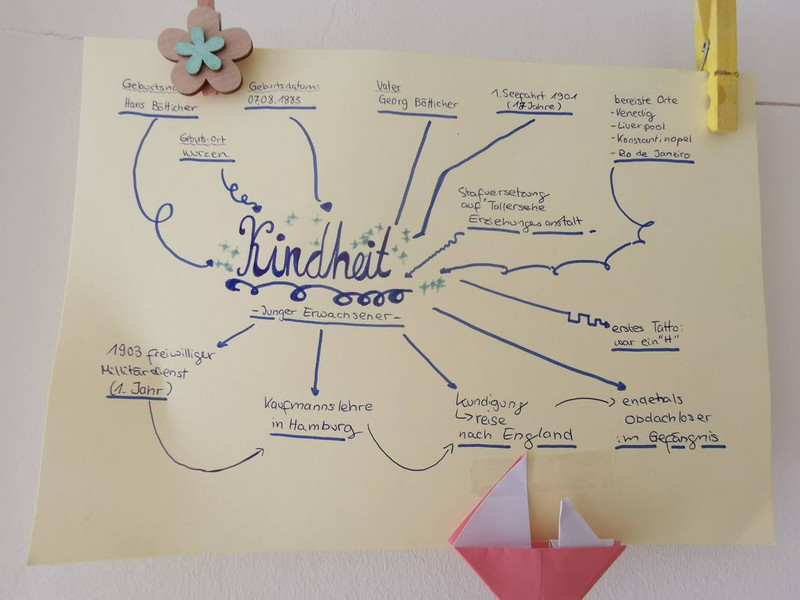 Hans Bötticher
Geburtsdatum:
07.08.1885
Vater
Georg Bötticher
1. Seefahrt 1901
(17 Jahre)
bereiste Orte
- Venedig
- Liverpool
- Konstantinopel
- Rio de Janeiro
Geburts-Ort
Wurzen
Stafversetzung
auf "Tollersche
Erziehungsanstalt
Kindheit
- Junger Erwachsener -
erstes Tatto:
war ein "H"
1903 freiwilliger
Militärdienst
(1. Jahr)
Kaufmannslehre
in Hamburg
Kündigung
↳ reise
nach England
endet als
Obdachloser
im Gefängnis